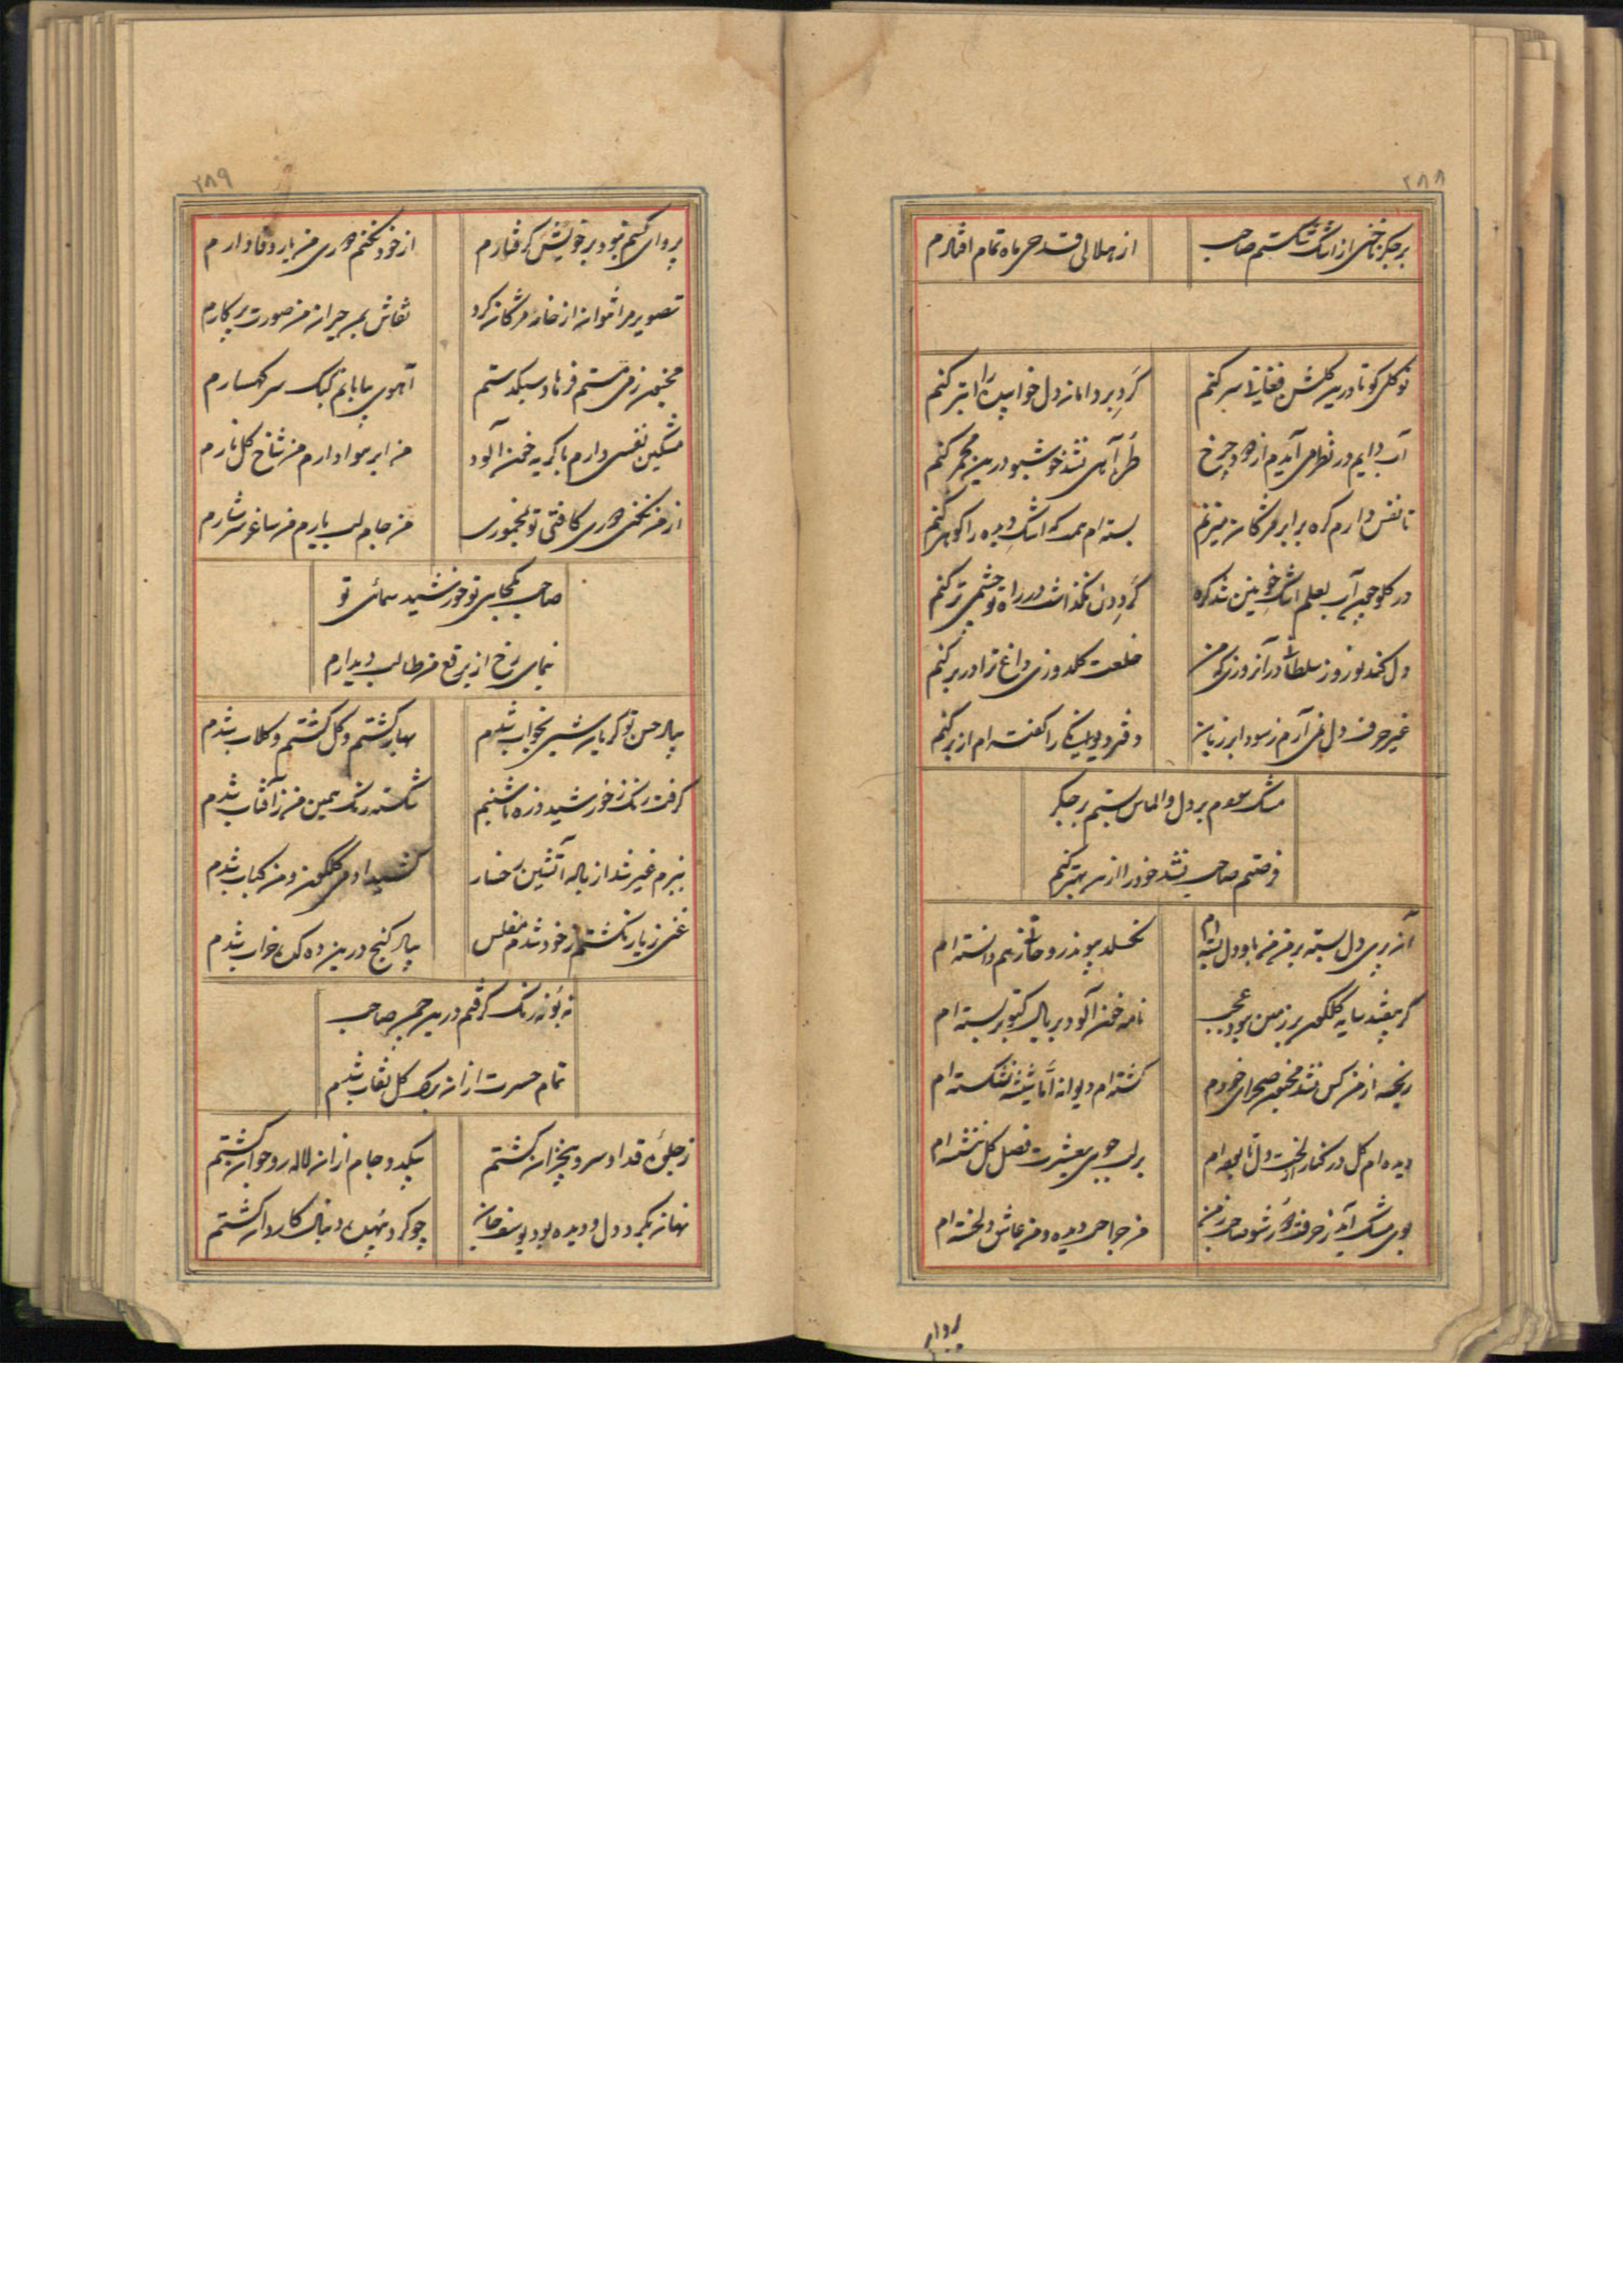 ۲۸۸
بر جگر ناخنی از اشک شکستم صاحب
از هلالی قدحی ماه تمام افشارم
نو گلی کو تا درین گلشن فغانی سر کنم
گرد بر دامان دل خوابیده را ابتر کنم
آب دایم در نظر می آیدم از دود چرخ
آهی نشد خوشبو درین مجمر کنم
تا نفس دارم گره بر ابر مژگان میزنم
بسته ام که اشک دیده را گوهر کنم
در گلو آب لعلم اشک خونین شد گره
گردون نگذاشت در راه تو چشمی تر کنم
دل کند نوروز سلطانی در آنروزی که من
خلعت گلدوزی داغ ترا در بر کنم
غیر حرف دل نمی آرم ز سودا بر زبان
دفتر دیوانگی را گفته ام از بر کنم
مشک سودم بر دل و الماس بستم بر جگر
فرصتم صاحب نشد خود را ازین بهتر کنم
آن پری دل بسته بر من من باو دل بسته ام
نگسلد پیوند روحانی ز هم دانسته ام
گر بیفتد سایه گلگون بر زمین نبود عجب
نامه خون آلود بر بال کبوتر بسته ام
رنجه از من کس نشد مجنون صحرای خودم
گشته ام دیوانه اما شیشه نشکسته ام
دیده ام گل در کنار لخت دل تا بوده ام
بر لب جوی بعشرت فصل گل ننشسته ام
بوی مشک آید ز حرف صاحب من
من جراحت دیده و من عاشق دلخسته ام
پروای
۲۸۹
پروای کسم نبود بر خویش گرفتارم
از خود نکنم دوری من یار وفادارم
تصویر مرا نتوان از خانه مژگان کرد
نقاش بمن حیران من صورت پرکارم
مجنون زمن مستم فرهاد سبکدستم
آهوی بیابانم کبک سر کهسارم
مشکین نفسی دارم با گریه خون آلود
من ابر هوادارم من شاخ گل نارم
از من نکنی دوری کافتی تو بمخموری
من جام لب یارم من ساغر سرشارم
صاحب بکجایی تو خورشید سمائی تو
بنمای رخ از برقع من طالب دیدارم
بیاد حسن تو گریان شبی بخواب شدم
بهار گشتم و گل گشتم و گلاب شدم
گرفت رنگ ز خورشید ذره تا شبنم
شکسته رنگ همین من ز آفتاب شدم
ببزم غیر شد از باده آتشین رخسار
کشید او می گلگون و من کباب شدم
غنی ز یار نگشتم ز خود شدم مفلس
بیاد گنج درین ده که خراب شدم
نه بو نه رنگ گرفتم درین چمن صاحب
تمام حسرت از ان برگ گل نقاب شدم
ز جلوه قد او سرو بیخزان گشتم
بیکدو جام از ان لاله رو جوان گشتم
نهان بگرد دل و دیده بود یوسف جان
چو گرد بیهده دنبال کاروان گشتم